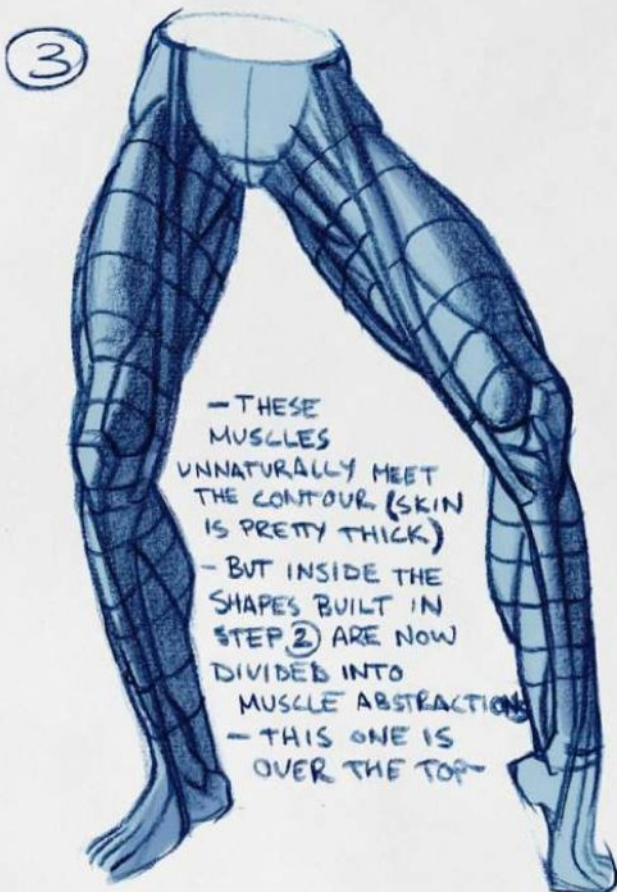 3
- THESE
MUSCLES
UNNATURALLY MEET
THE CONTOUR (SKIN
IS PRETTY THICK)
- BUT INSIDE THE
SHAPES BUILT IN
STEP 2 ARE NOW
DIVIDED INTO
MUSCLE ABSTRACTIONS
- THIS ONE IS
OVER THE TOP-